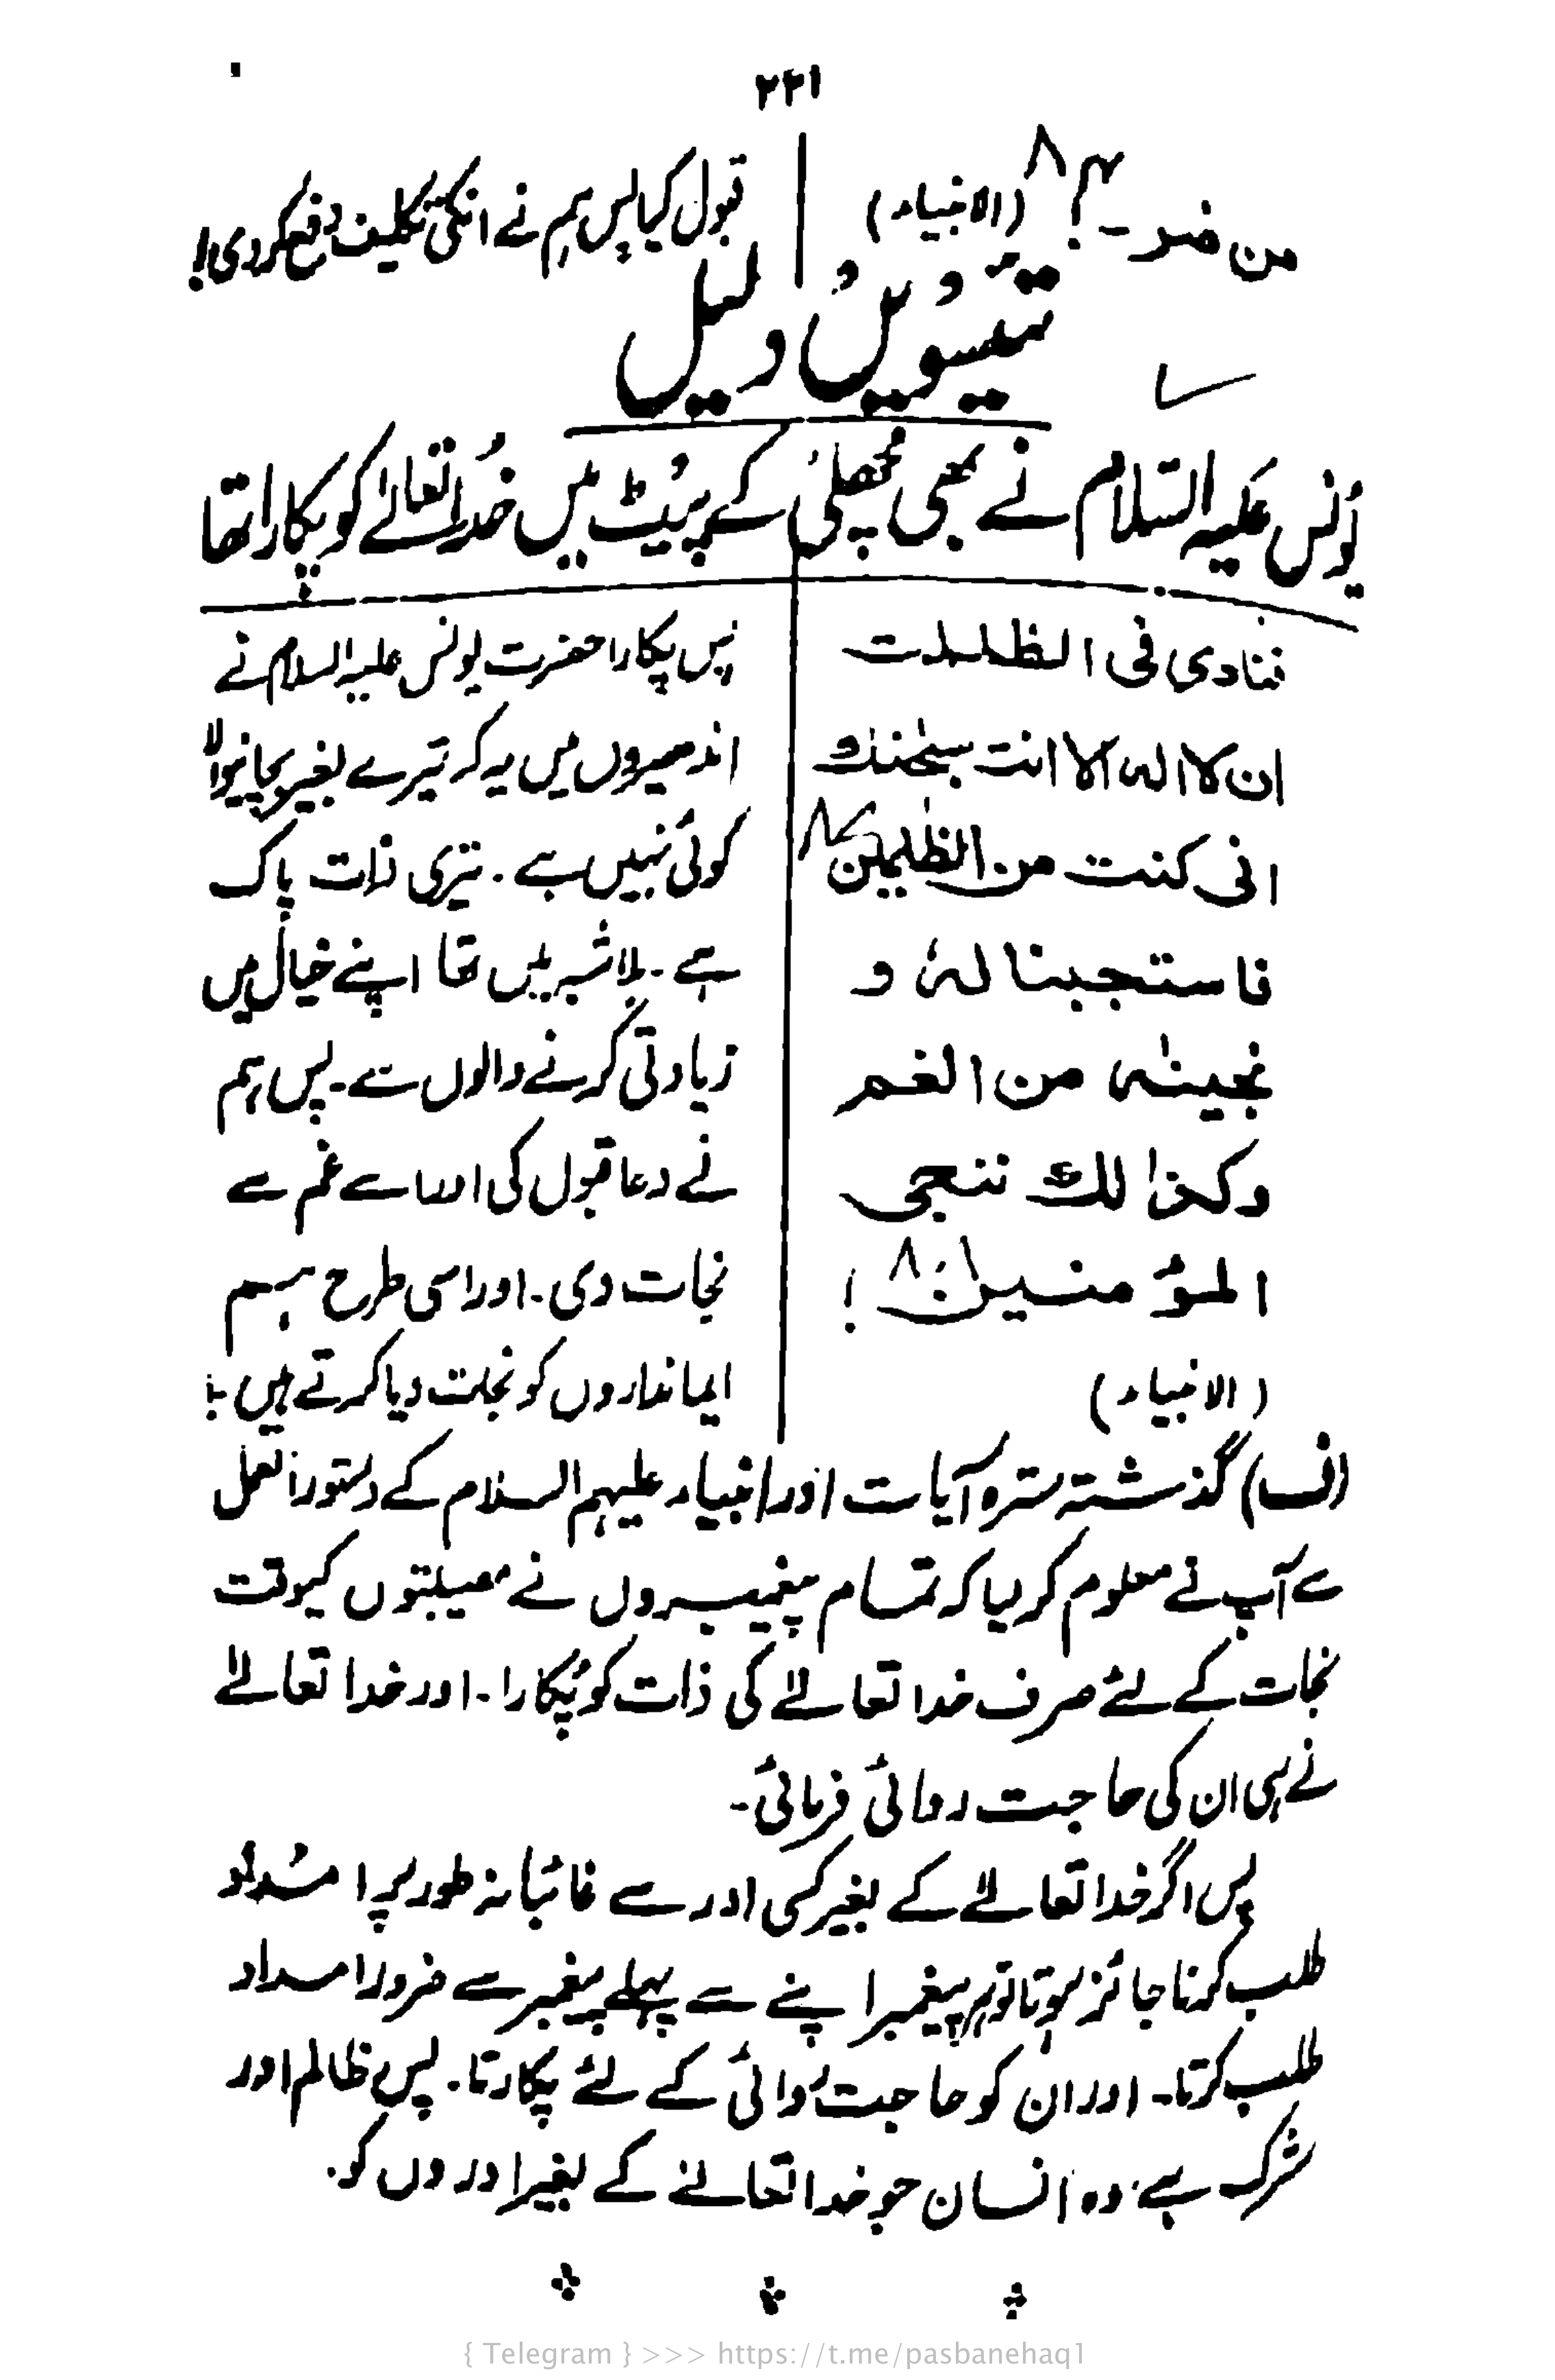 ۲۲۱
من ضر۔! ۸۴ (الانبیاء)
قبول کیا پس ہم نے انکی تکلیف دفع کر دی!
تئیسویں دلیل
یونس علیہ السلام نے بھی مچھلی کے پیٹ میں خدا تعالےٰ کو پکارا تھا
فنادی فی الظلمت
ان لا الہ الا انت سبحٰنک
انی کنت من الظٰلمین ۸۷
فاستجبنا لہٗ و
نجینٰہ من الغم
وکذالک ننجی
المؤمنین! ۸۸
(الانبیاء)
پس پکارا حضرت یونس علیہ السلام نے
اندھیروں میں یہ کہ تیرے بغیر بچانیوالا
کوئی نہیں ہے۔ تیری ذات پاک
ہے۔ بلاشبہ میں تھا اپنے خیال میں
زیادتی کرنے والوں سے۔ پس ہم
نے دعا قبول کی اور اسے غم سے
نجات دی۔ اور اسی طرح ہم
ایمانداروں کو نجات دیا کرتے ہیں!
(ف) گذشتہ سترہ آیات اور انبیاء علیہم السلام کے دستور العمل
سے آپ نے معلوم کر لیا کہ تمام پیغمبروں نے مصیبتوں کیوقت
نجات کے لئے صرف خدا تعالےٰ کی ذات کو پکارا۔ اور خدا تعالےٰ
نے ہی ان کی حاجت روائی فرمائی۔
پس اگر خدا تعالےٰ کے بغیر کسی اور سے غائبانہ طور پر امداد
طلب کرنا جائز ہوتا تو ہر پیغمبر اپنے سے پہلے پیغمبر سے ضرور امداد
طلب کرتا۔ اور ان کو حاجت روائی کے لئے پکارتا۔ پس ظالم اور
مشرک ہے وہ انسان جو خدا تعالےٰ کے بغیر اوروں کو۔
{ Telegram } >>> https://t.me/pasbanehaq1